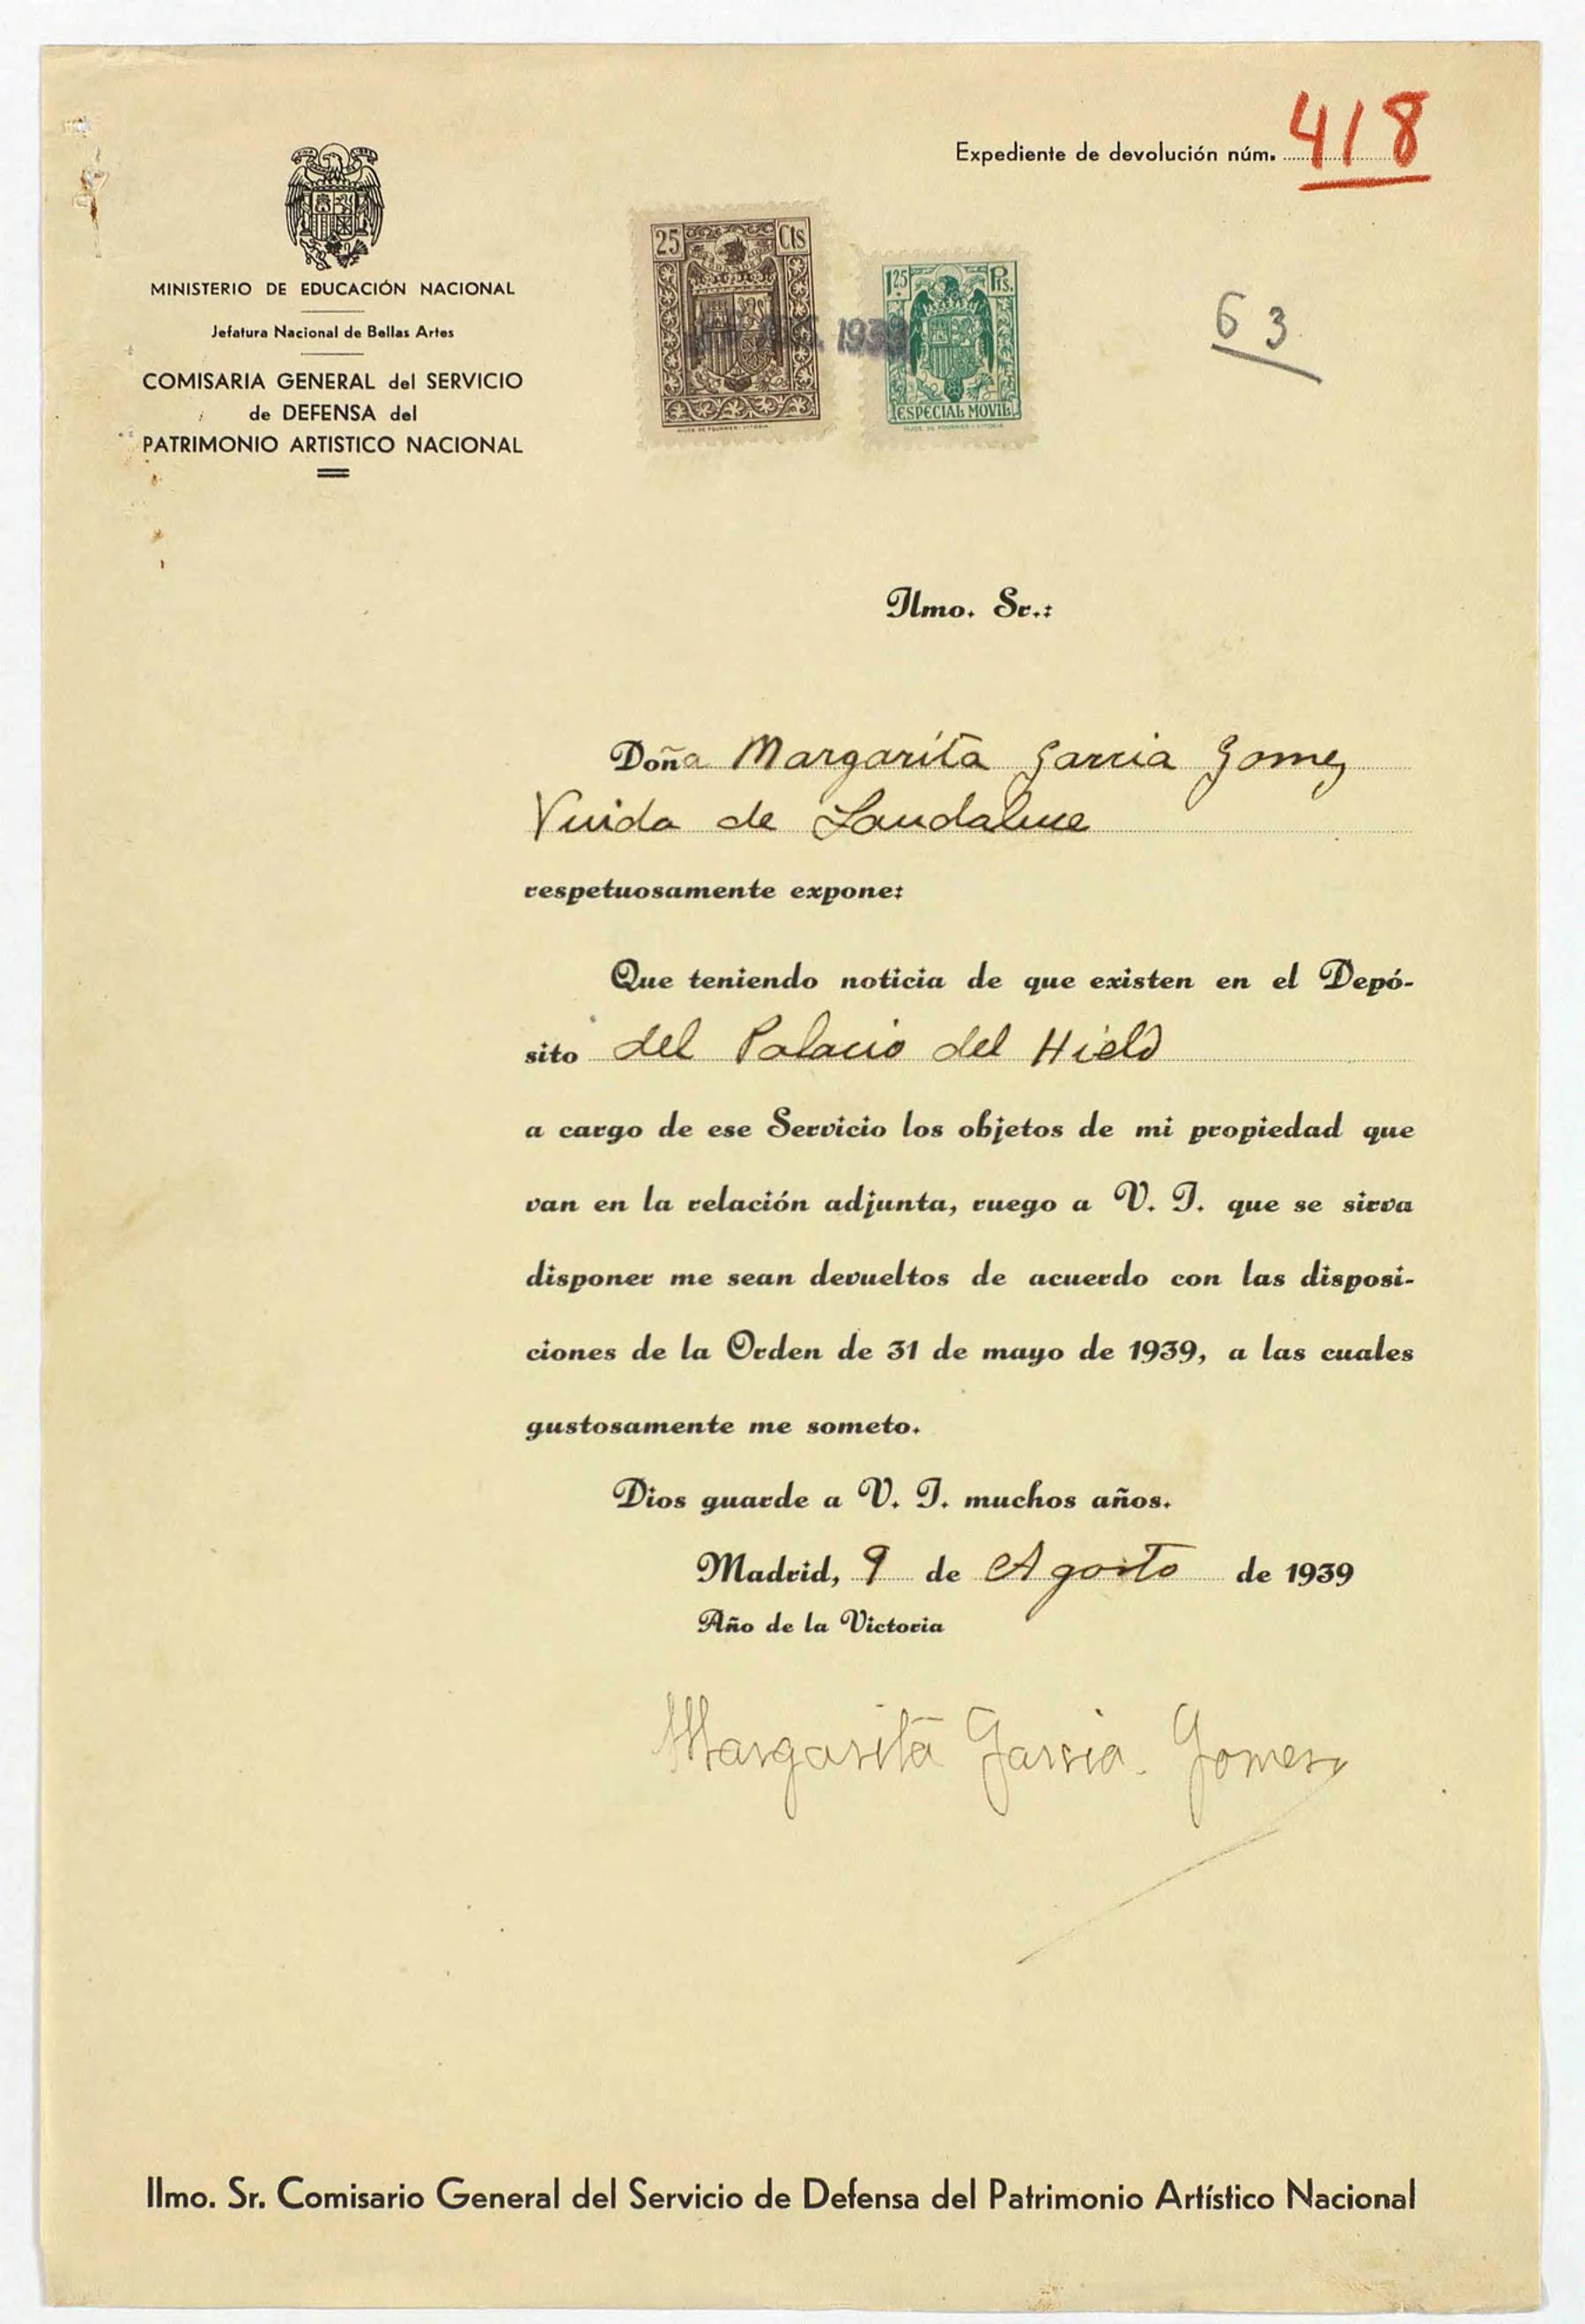 Expediente de devolución núm. 418
MINISTERIO DE EDUCACIÓN NACIONAL
Jefatura Nacional de Bellas Artes
COMISARIA GENERAL del SERVICIO
de DEFENSA del
PATRIMONIO ARTISTICO NACIONAL
25 Cts
1939
1,25 Pts.
ESPECIAL MOVIL
63
Ilmo. Sr.:
Doña Margarita Garcia Gomez
Viuda de Landaluce
respetuosamente expone:
Que teniendo noticia de que existen en el Depó-
sito del Palacio del Hielo
a cargo de ese Servicio los objetos de mi propiedad que
van en la relación adjunta, ruego a V. I. que se sirva
disponer me sean devueltos de acuerdo con las disposi-
ciones de la Orden de 31 de mayo de 1939, a las cuales
gustosamente me someto.
Dios guarde a V. I. muchos años.
Madrid, 9 de Agosto de 1939
Año de la Victoria
Margarita Garcia Gomez
Ilmo. Sr. Comisario General del Servicio de Defensa del Patrimonio Artístico Nacional